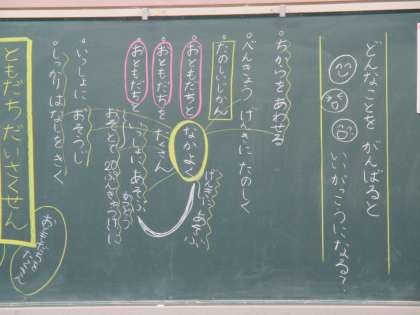 どんなことを がんばると
いいがっこうになる?
。ちからをあわせる
。べんきょう げんきに たのしく
たのしいじかん
。おともだちと なかよく
げんきに あそぶ
。おともだちを たくさん
。おともだちと いっしょに あそぶ
。いっしょに おそうじ
。しっかりはなしをきく
ともだちだいさくせん